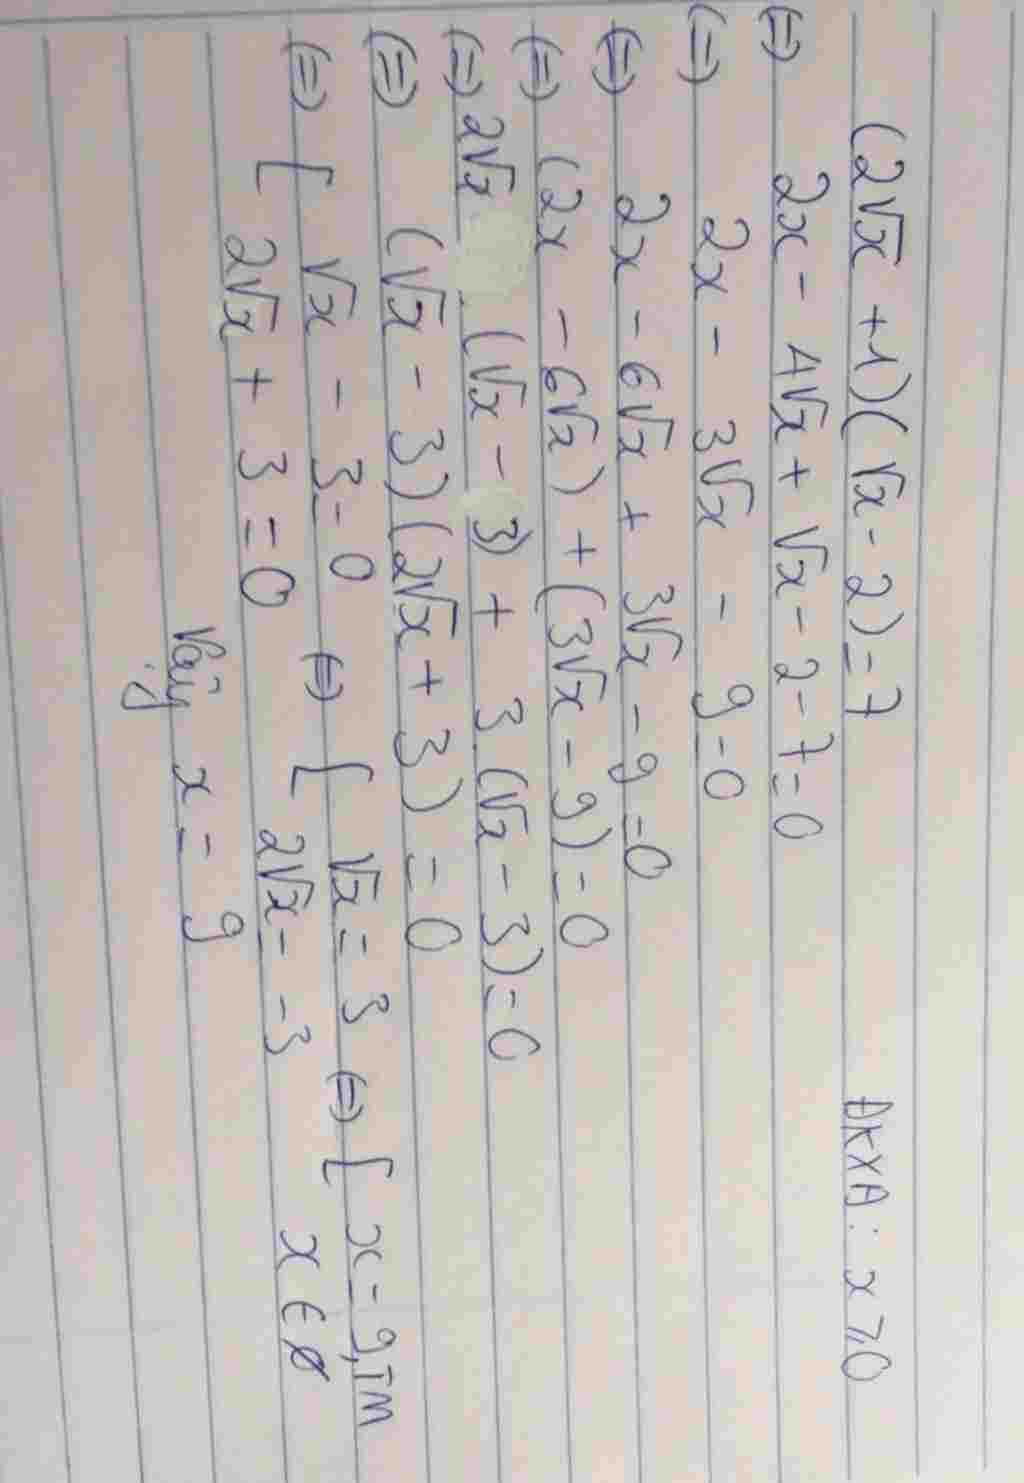 (2√x + 1)(√x - 2) = 7 ĐKXĐ: x ⩾ 0
(=) 2x - 4√x + √x - 2 - 7 = 0
(=) 2x - 3√x - 9 = 0
(=) 2x - 6√x + 3√x - 9 = 0
(=) (2x - 6√x) + (3√x - 9) = 0
(=) 2√x (√x - 3) + 3.(√x - 3) = 0
(=) (√x - 3)(2√x + 3) = 0
(=) [ √x - 3 = 0 (=) [ √x = 3 (=) [ x = 9, TM
2√x + 3 = 0 2√x = -3 x ∈ ∅
Vậy x = 9